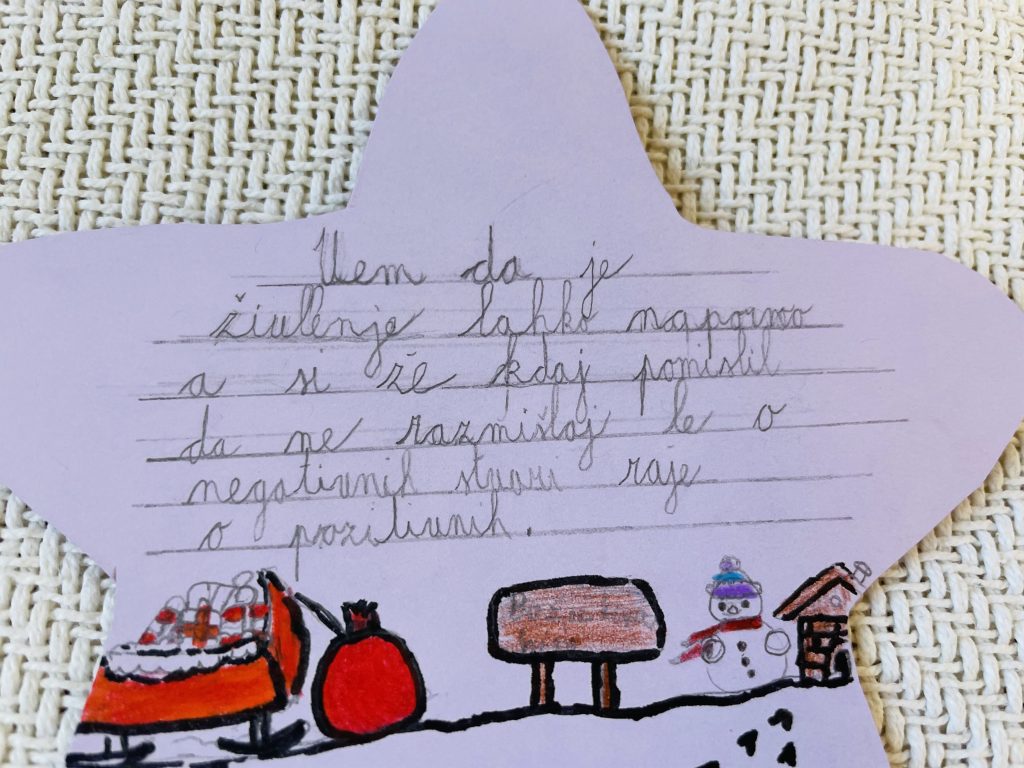 Vem da je
življenje lahko naporno
a si že kdaj pomislil
da ne razmišlaj le o
negativnih stvari raje
o pozitivnih.